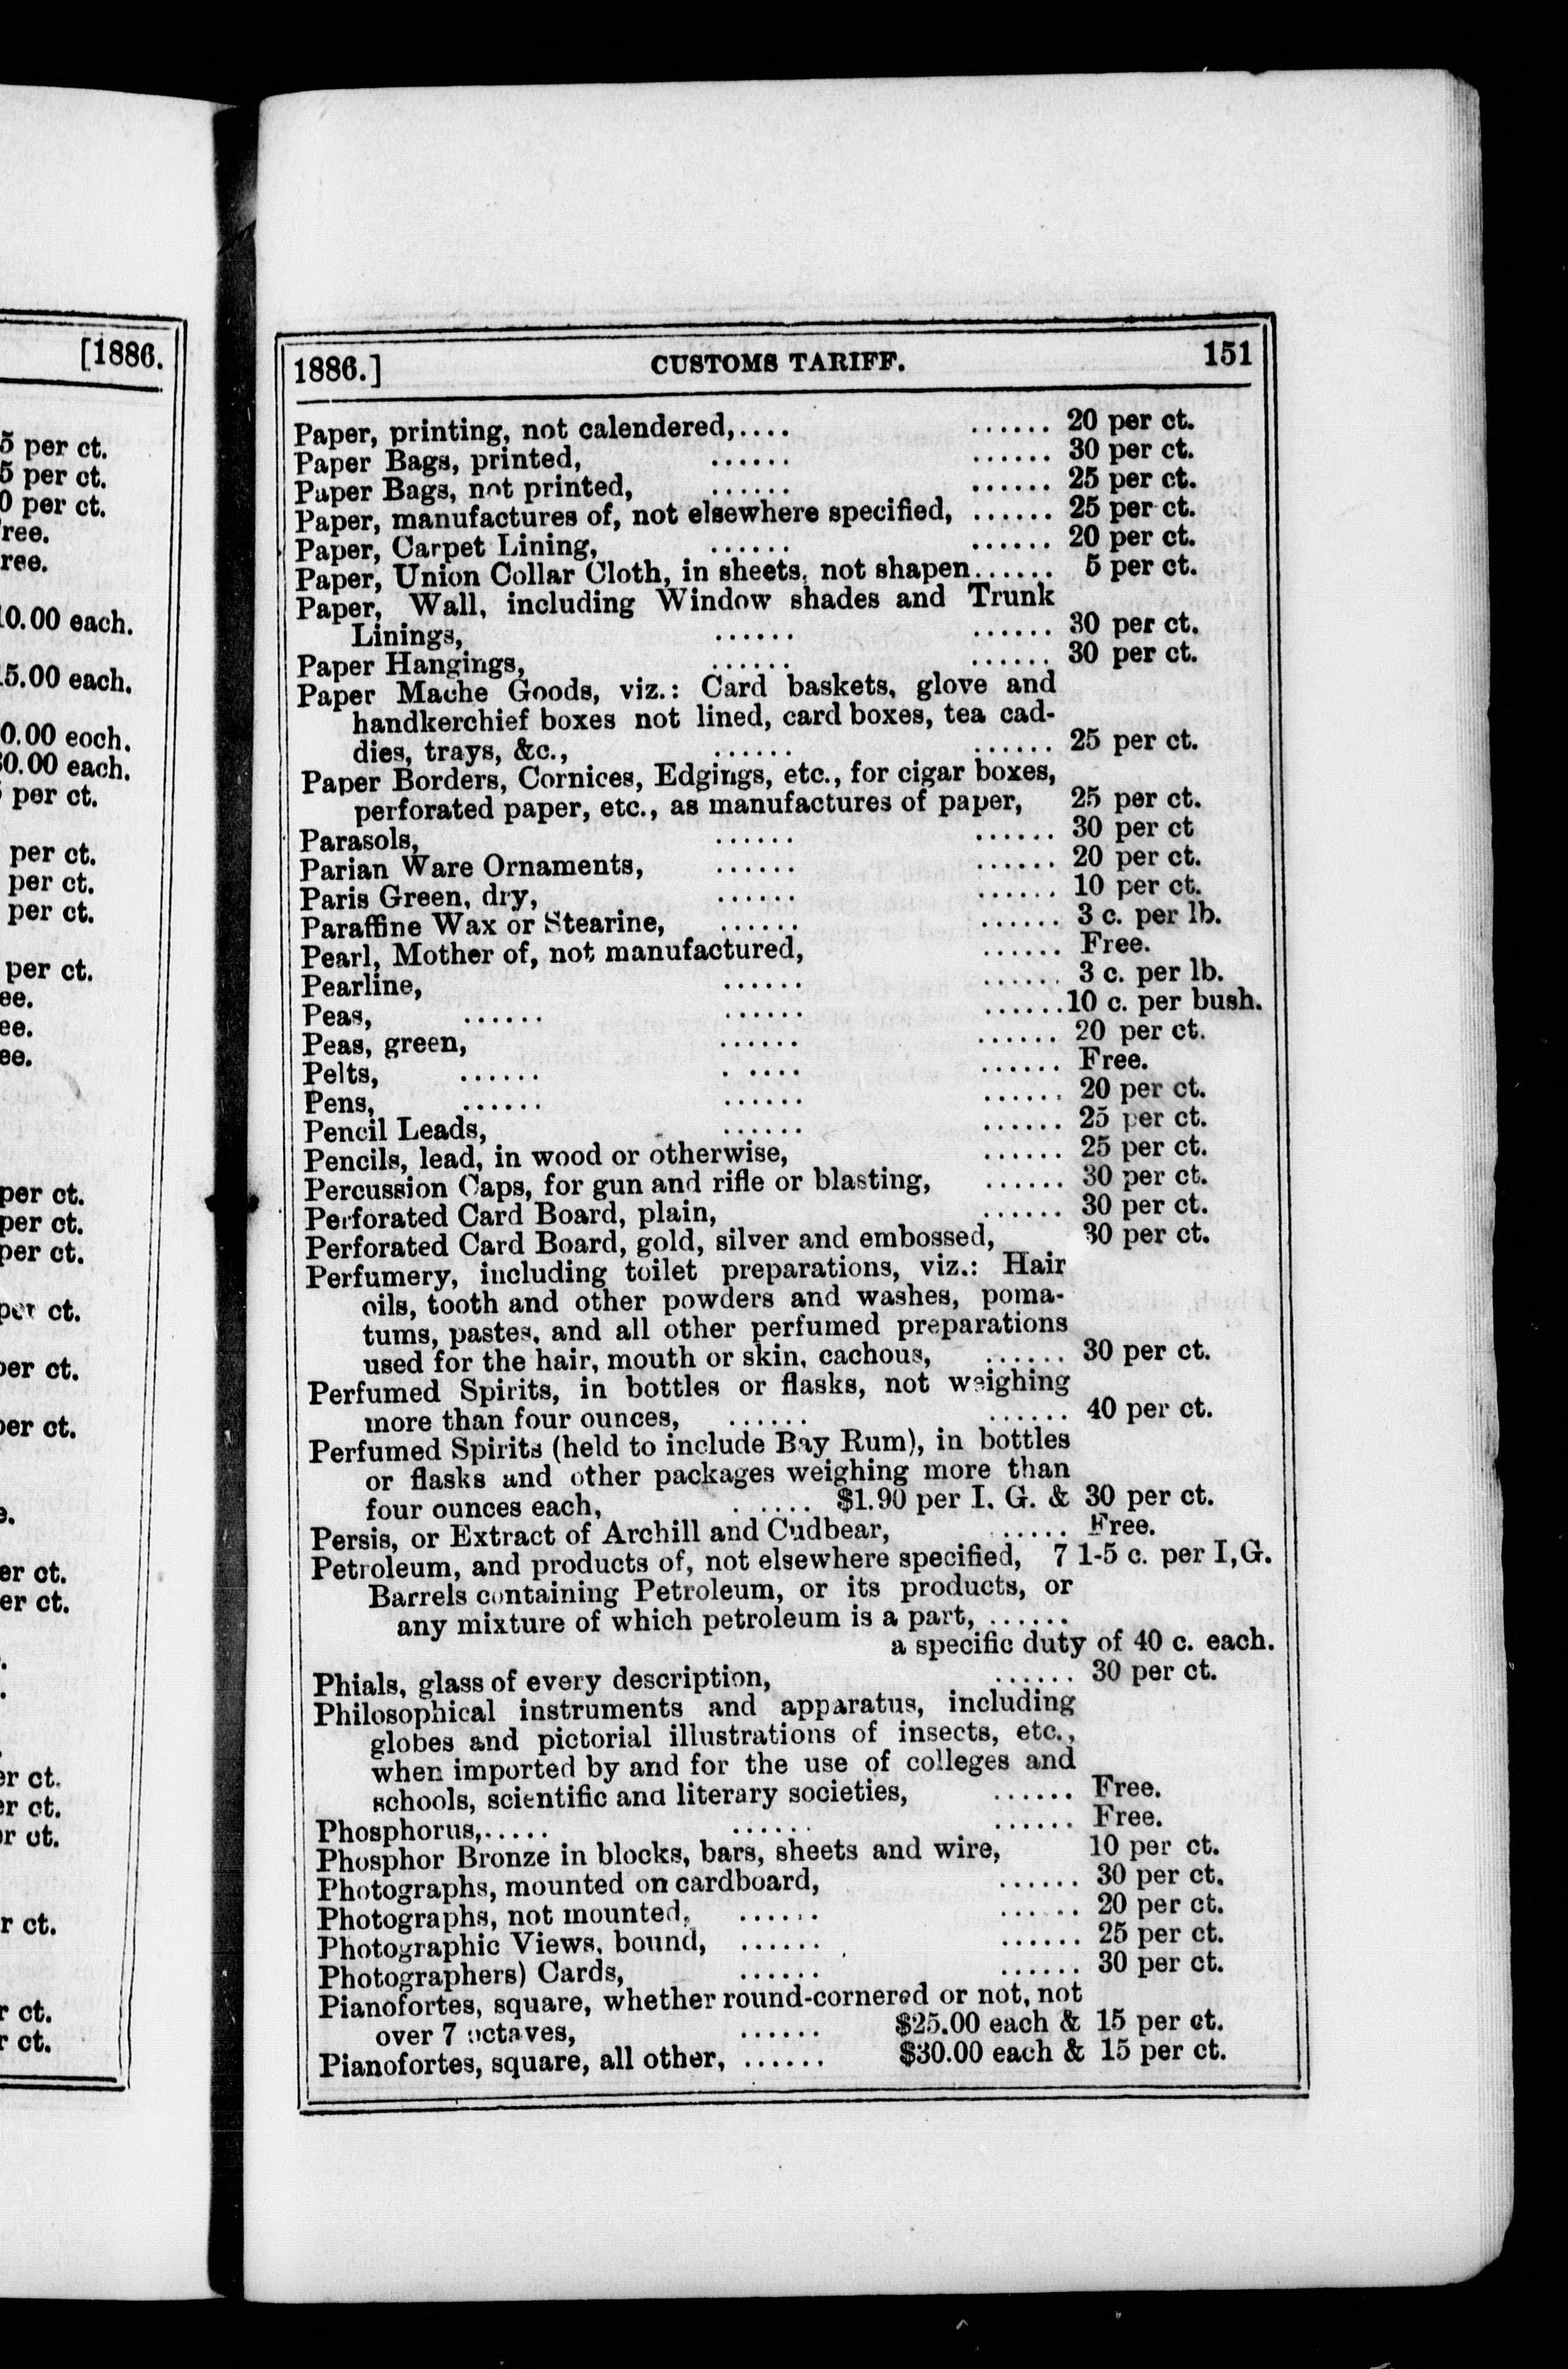 [1886.
5 per ct.
5 per ct.
0 per ct.
ree.
ree.
10.00 each.
15.00 each.
0.00 eoch.
30.00 each.
per ct.
per ct.
per ct.
per ct.
per ct.
ee.
ee.
ee.
per ct.
per ct.
per ct.
per ct.
per ct.
per ct.
e.
er ct.
er ct.
er ct.
er ct.
er ct.
r ct.
r ct.
r ct.
1886.] CUSTOMS TARIFF. 151
Paper, printing, not calendered,.... ...... 20 per ct.
Paper Bags, printed, ...... ...... 30 per ct.
Paper Bags, not printed, ...... ...... 25 per ct.
Paper, manufactures of, not elsewhere specified, ...... 25 per ct.
Paper, Carpet Lining, ...... ...... 20 per ct.
Paper, Union Collar Cloth, in sheets, not shapen...... 5 per ct.
Paper, Wall, including Window shades and Trunk
Linings, ...... ...... 30 per ct.
Paper Hangings, ...... ...... 30 per ct.
Paper Mache Goods, viz.: Card baskets, glove and
handkerchief boxes not lined, card boxes, tea cad-
dies, trays, &c., ...... ...... 25 per ct.
Paper Borders, Cornices, Edgings, etc., for cigar boxes,
perforated paper, etc., as manufactures of paper, 25 per ct.
Parasols, ...... ...... 30 per ct
Parian Ware Ornaments, ...... ...... 20 per ct.
Paris Green, dry, ...... ...... 10 per ct.
Paraffine Wax or Stearine, ...... ...... 3 c. per lb.
Pearl, Mother of, not manufactured, ...... Free.
Pearline, ...... ...... 3 c. per lb.
Peas, ...... ...... ......10 c. per bush.
Peas, green, ...... ...... 20 per ct.
Pelts, ...... . .... ...... Free.
Pens, ...... ...... ...... 20 per ct.
Pencil Leads, ...... ...... 25 per ct.
Pencils, lead, in wood or otherwise, ...... 25 per ct.
Percussion Caps, for gun and rifle or blasting, ...... 30 per ct.
Perforated Card Board, plain, ...... 30 per ct.
Perforated Card Board, gold, silver and embossed, 30 per ct.
Perfumery, including toilet preparations, viz.: Hair
oils, tooth and other powders and washes, poma-
tums, pastes, and all other perfumed preparations
used for the hair, mouth or skin, cachous, ...... 30 per ct.
Perfumed Spirits, in bottles or flasks, not weighing
more than four ounces, ...... ...... 40 per ct.
Perfumed Spirits (held to include Bay Rum), in bottles
or flasks and other packages weighing more than
four ounces each, . .... $1.90 per I. G. & 30 per ct.
Persis, or Extract of Archill and Cudbear, ..... Free.
Petroleum, and products of, not elsewhere specified, 7 1-5 c. per I,G.
Barrels containing Petroleum, or its products, or
any mixture of which petroleum is a part, ......
a specific duty of 40 c. each.
Phials, glass of every description, ...... 30 per ct.
Philosophical instruments and apparatus, including
globes and pictorial illustrations of insects, etc.,
when imported by and for the use of colleges and
schools, scientific and literary societies, ...... Free.
Phosphorus,..... ...... ...... Free.
Phosphor Bronze in blocks, bars, sheets and wire, 10 per ct.
Photographs, mounted on cardboard, ...... 30 per ct.
Photographs, not mounted, ...... ...... 20 per ct.
Photographic Views, bound, ...... ...... 25 per ct.
Photographers) Cards, ...... ...... 30 per ct.
Pianofortes, square, whether round-cornered or not, not
over 7 octaves, ...... $25.00 each & 15 per ct.
Pianofortes, square, all other, ...... $30.00 each & 15 per ct.